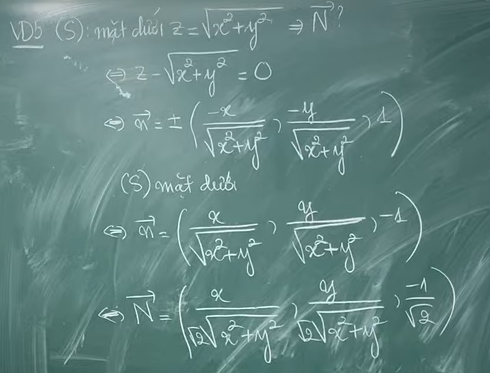 VD5 (S): mặt dưới z = √(x²+y²) ⇒ N⃗ ?
⇔ z - √(x²+y²) = 0
⇔ n⃗ = ± (-x/√(x²+y²), -y/√(x²+y²), 1)
(S) mặt dưới
⇔ n⃗ = (x/√(x²+y²), y/√(x²+y²), -1)
⇔ N⃗ = (x/(√2√(x²+y²)), y/(√2√(x²+y²)), -1/√2)